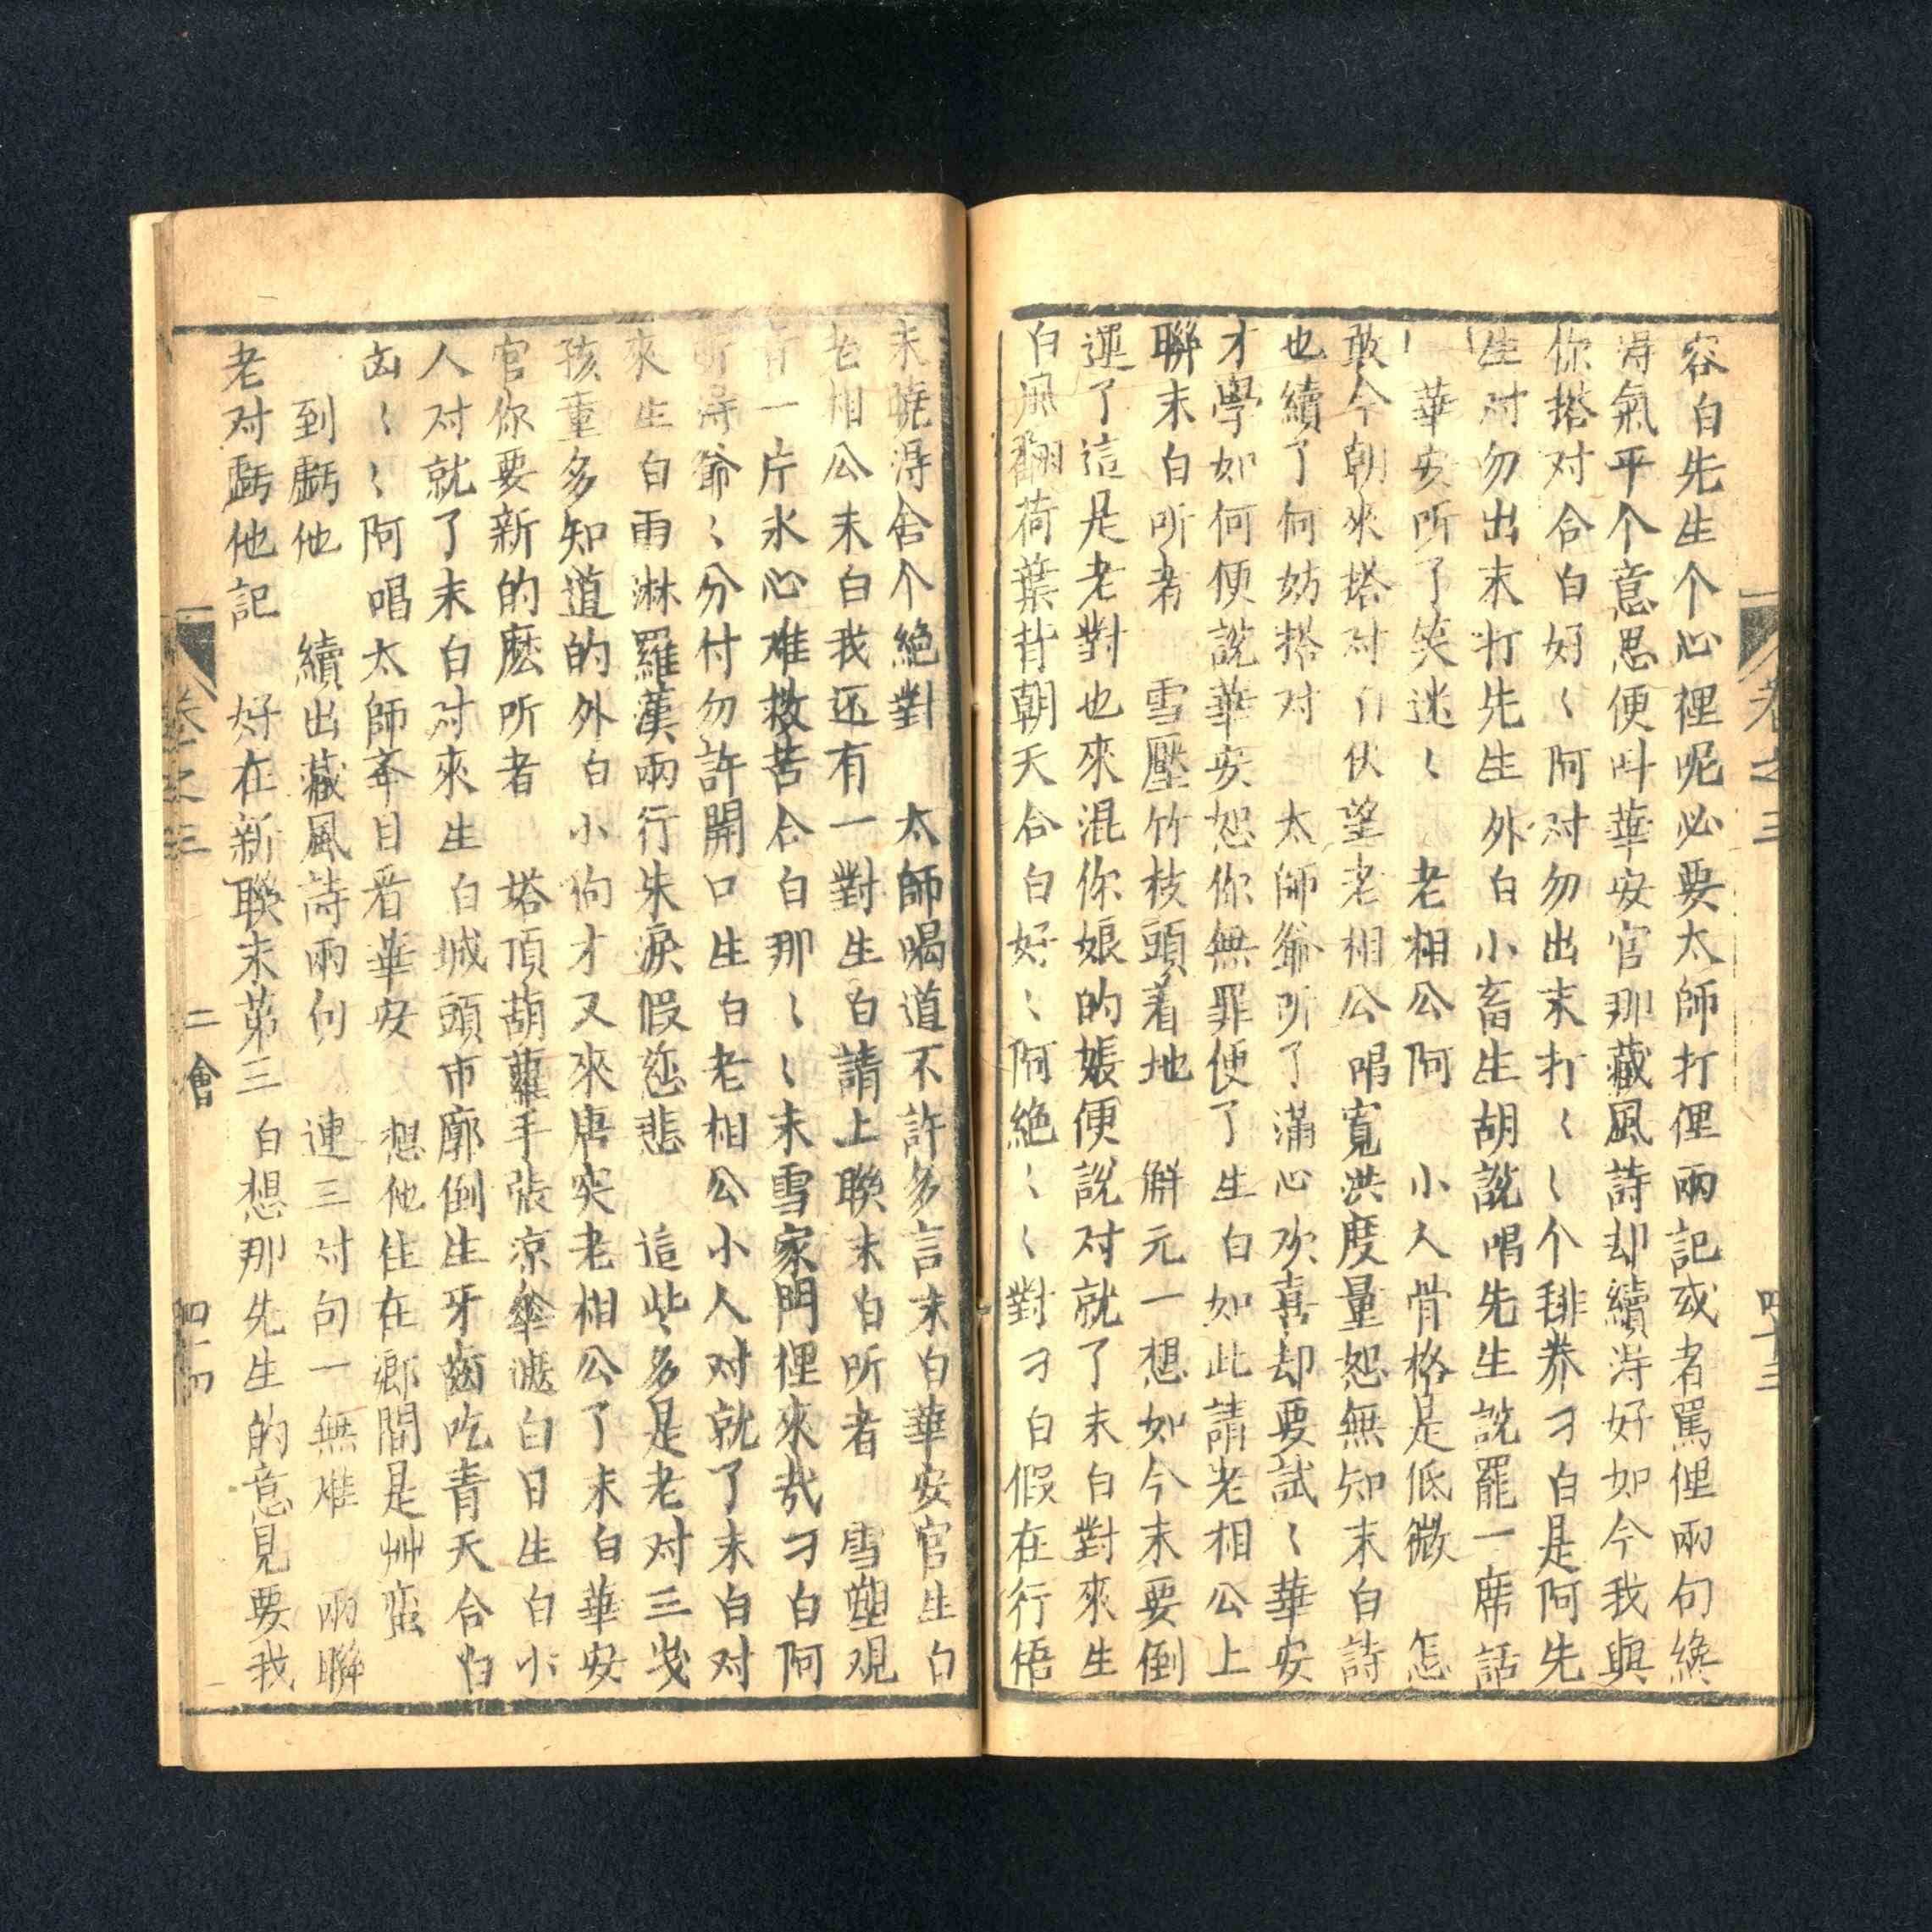 容白先生个心裡呢必要太師打俚兩記或者罵俚兩句纔
淂氣平个意思便叫華安官那藏風詩却續淂好如今我與
你搭对合白好〻阿对勿出末打〻〻个養刁白是阿先
生对勿出末打先生外白小畜生胡說唱先生說罷一席話
華安听了笑迷〻 老相公阿 小人骨格是低微 怎
敢今朝來塔对 伏望老相公 唱寬洪度量恕無知末白詩
也續了何妨搭对 太師爺听了滿心欢喜却要試〻華安
才學如何便說華安恕你無罪便了生白如此請老相公上
聯末白听者 雪壓竹枝頭着地 解元一想如今末要倒
運了這是老對也來混你娘的賬便說对就了末白對來生
白風翻荷葉背朝天合白好〻阿絶〻〻對刁白假在行悟
卷之三 四十三
未曉淂舍个絶對 太師喝道不許多言末白華安官生白
老相公末白我还有一對生白請上聯末白听者 雪塑观
音一片氷心难救苦合白那〻〻末雪家門俚來哉刁白阿
听淂爺〻分付勿許開口生白老相公小人对就了末白对
來生白雨淋羅漢兩行朱淚假慈悲 這些多是老对三歲
孩童多知道的外白小佝才又來唐突老相公了末白華安
官你要新的麽听者 塔頂葫蘆手張凉傘遮白日生白小
人对就了末白对來生白城頭市廓倒生牙齒吃青天合白
凶〻〻阿唱太師夲目看華安 想他住在鄉間是艸蛮
到虧他 續出藏風詩兩句 連三对句一無难 兩聯
老对虧他記 好在新联末第三 白想那先生的意見要我
卷之三 二會 四十四